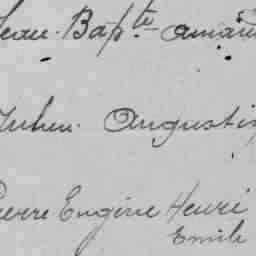 Jean-Bapte Amand
Julien Augustin
Pierre Eugène Henri
Emile